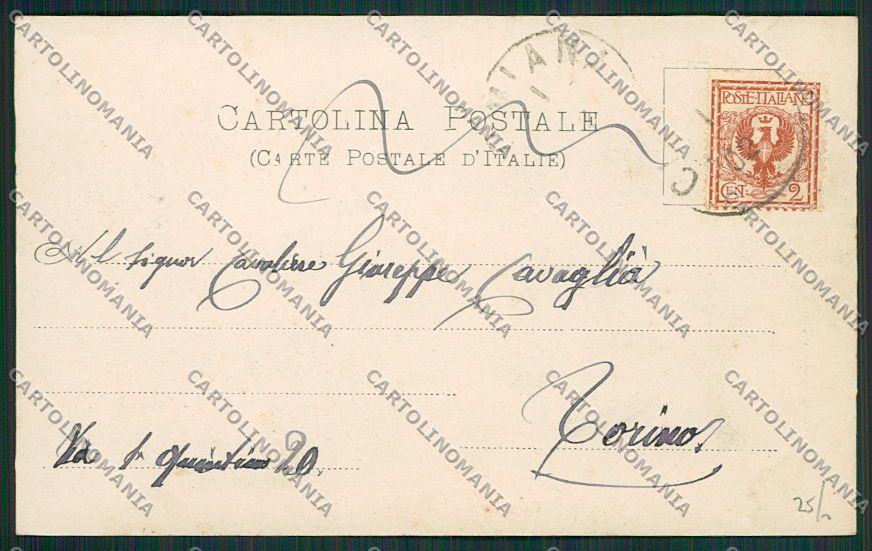 CARTOLINA POSTALE
(CARTE POSTALE D'ITALIE)
POSTE·ITALIANE
CENT. 2
Al Signor Cavaliere Giuseppe Cavaglià
Torino
Via S. Quintino 20.
25/-
CARTOLINOMANIA